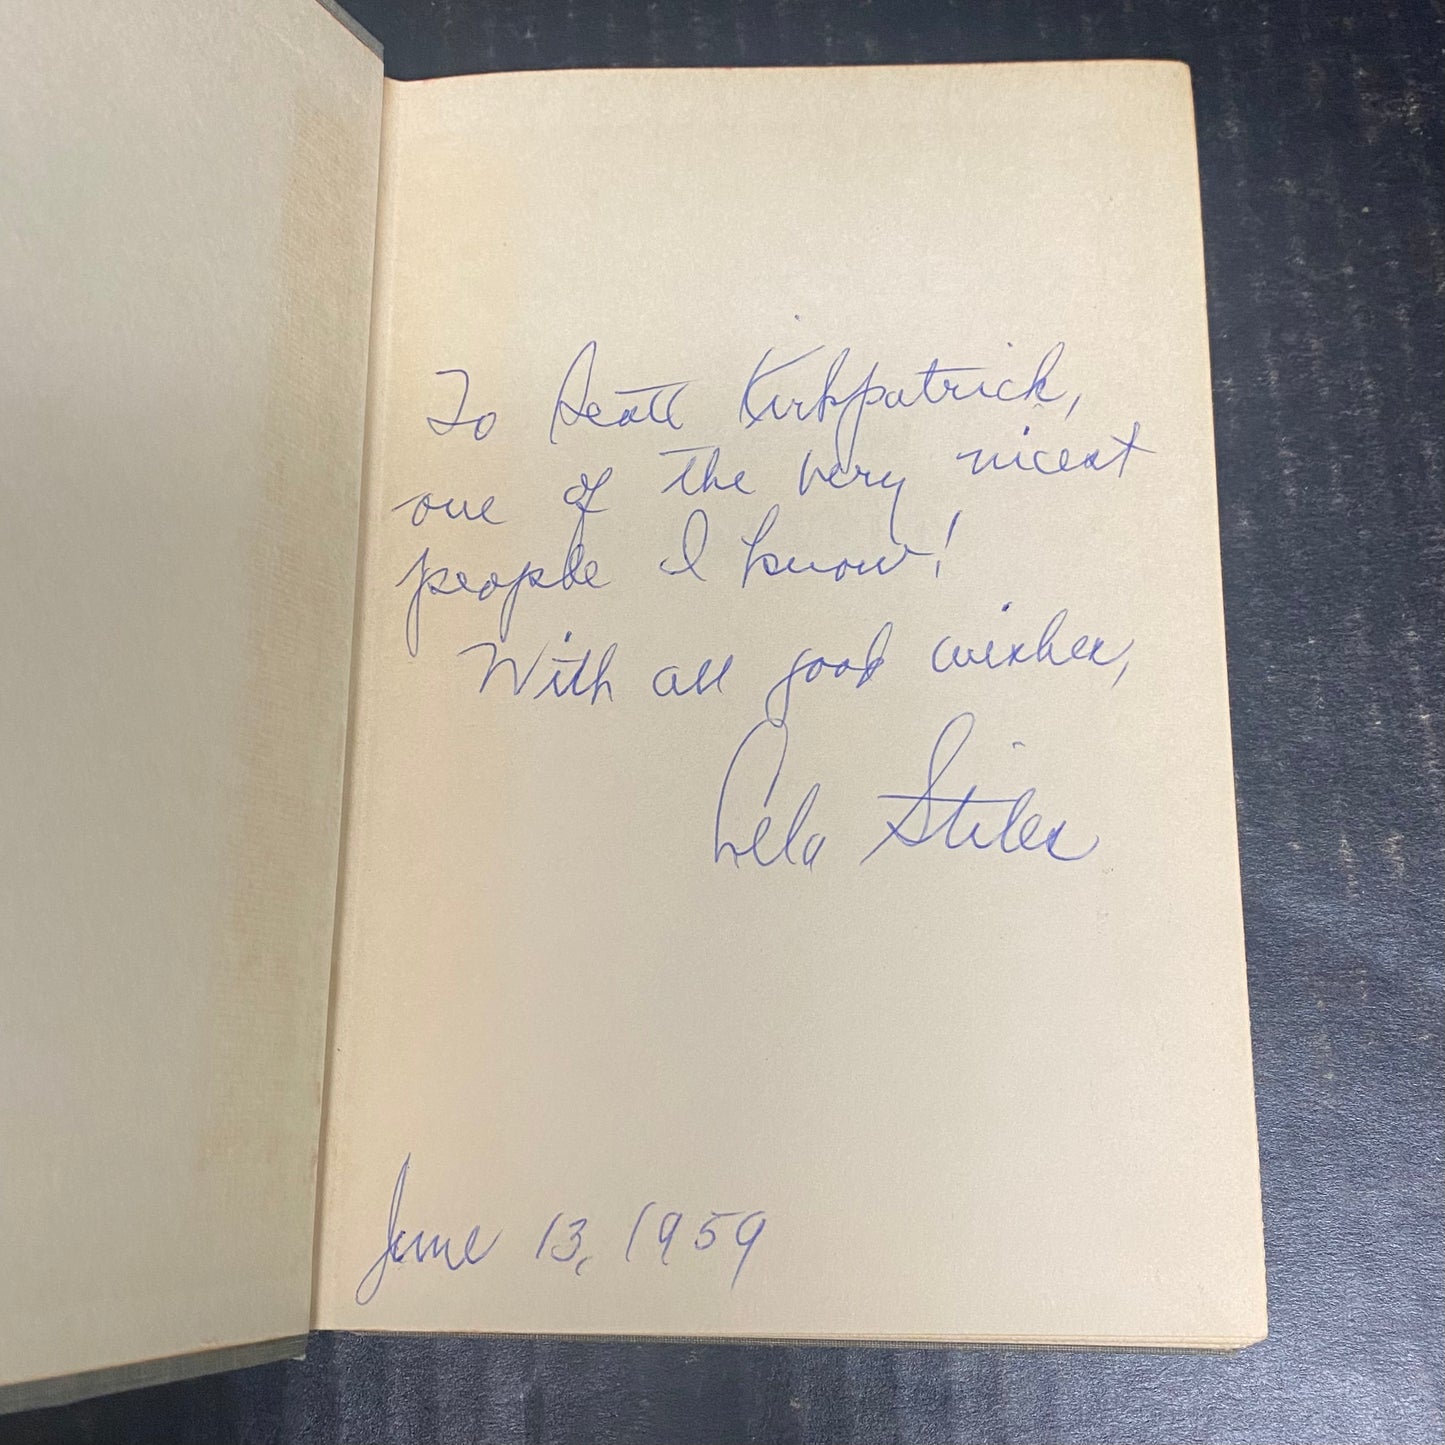 To Scott Kirkpatrick,
one of the very nicest
people I know!
With all good wishes,
Lela Stiles
June 13, 1959